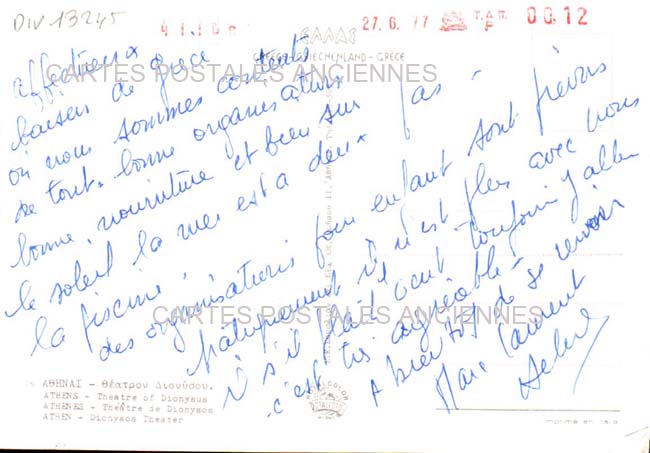 DIV 13245
27.6.77 T.A.P. 00.12
ΕΛΛΑΣ
GRIECHENLAND - GRECE
CARTES POSTALES ANCIENNES
affectueux
baisers de grèce
où nous sommes contents
de tout. bonne organisation
bonne nourriture et bien sur
le soleil la mer est a deux pas
la piscine,
des organisations pour enfant sont prévus
il n'est plus avec nous
il s'il fait toujours y aller
c'est très agréable
A bientôt de se revoir
Marc Laurent
CARTES POSTALES ANCIENNES
ΑΘΗΝΑΙ - Θέατρον Διονύσου.
ATHENS - Theatre of Dionysus
ATHENES - Théâtre de Dionysos
ATHEN - Dionysos Theater